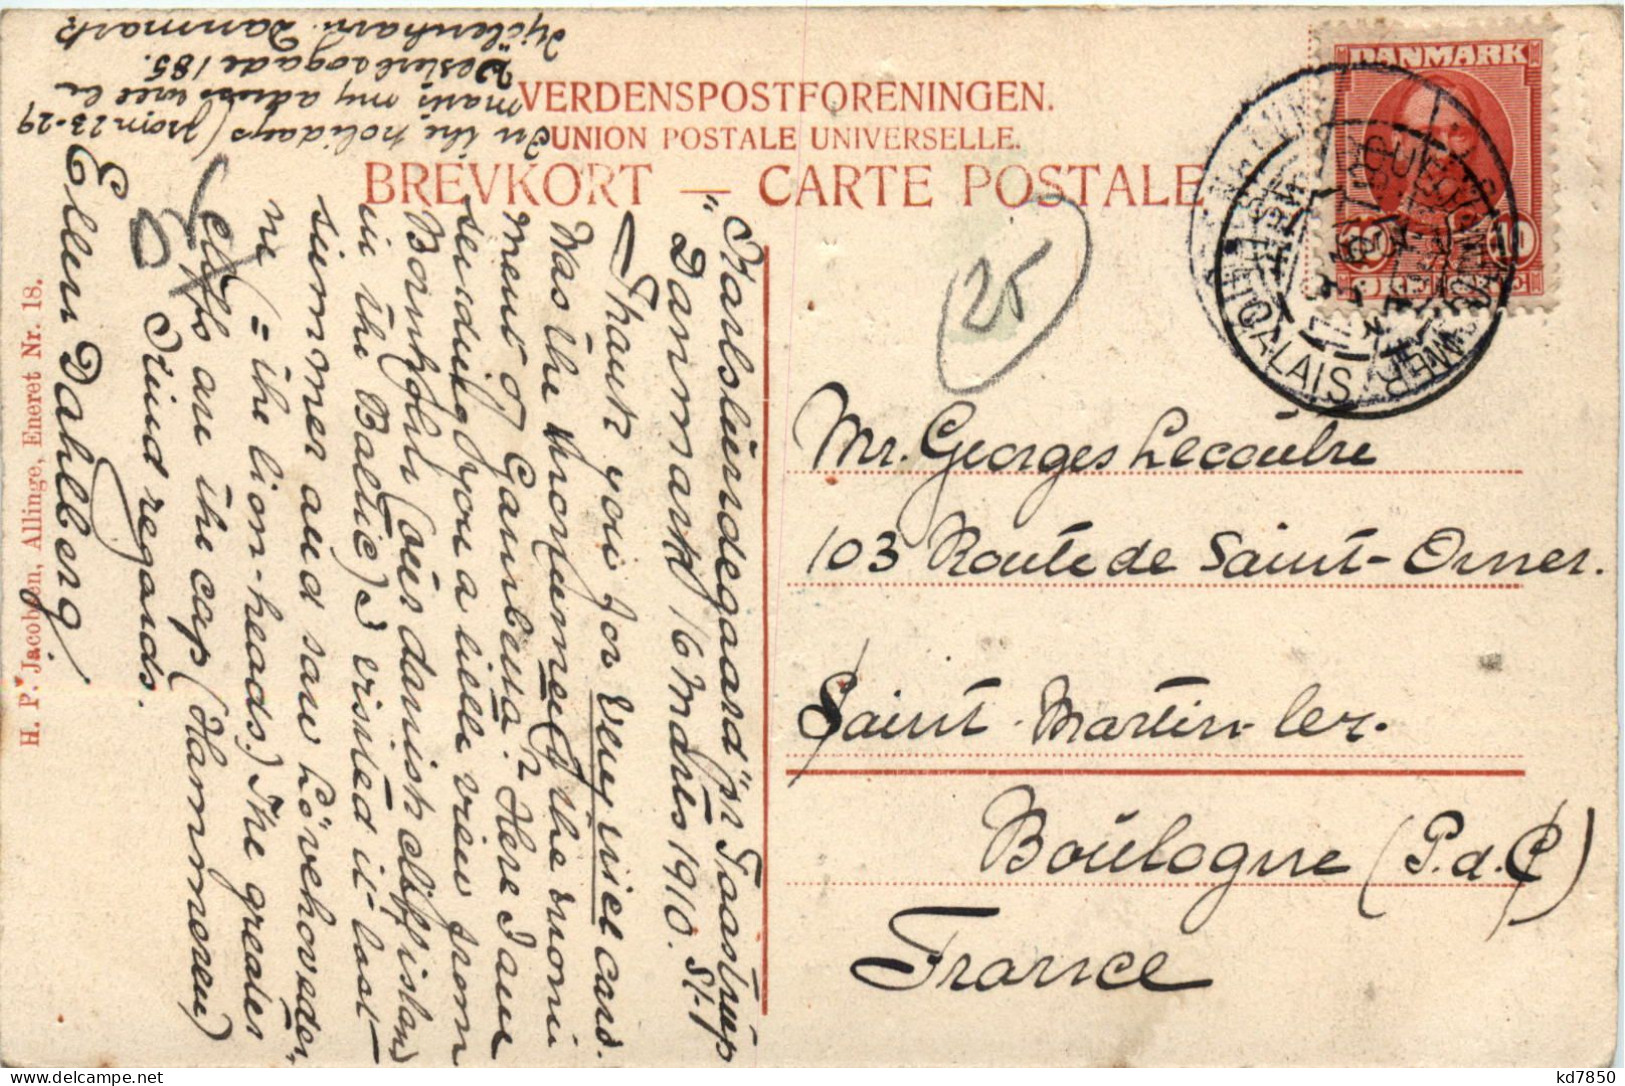 VERDENSPOSTFORENINGEN.
UNION POSTALE UNIVERSELLE.
BREVKORT — CARTE POSTALE
DANMARK
10 10
CALAIS
25
Mr. Georges Lecoutre
103 Route de Saint-Omer.
Saint-Martin-lez-
Boulogne (P.d.C)
France
"Karlslundegaard" pr Taastrup
Danmark 16 Marts 1910.
Thank you for very nice card.
Was the monument the monu
ment of Gambetta? Here I am
sending you a little view from
Bornholm (our danish cliff island
in the Baltic) I visited it last
summer and saw Lövehoveder,
ne (= the lion-heads.) The greates
cliffs are the cap (Hammeren)
Kind regards.
Ellen Dahlberg
In the holidays (from 23-29
marts my adress will be
Vesterbrogade 185.
Kjöbenhavn. Danmark
H. P. Jacobsen, Allinge, Eneret Nr. 18.
kd7850